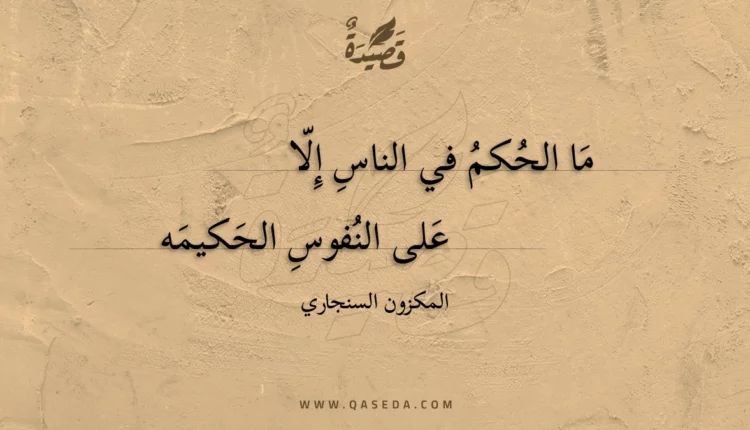 قَصِيدَةٌ
مَا الحُكمُ في الناسِ إِلّا
عَلى النُفوسِ الحَكيمَه
المكزون السنجاري
WWW.QASEDA.COM